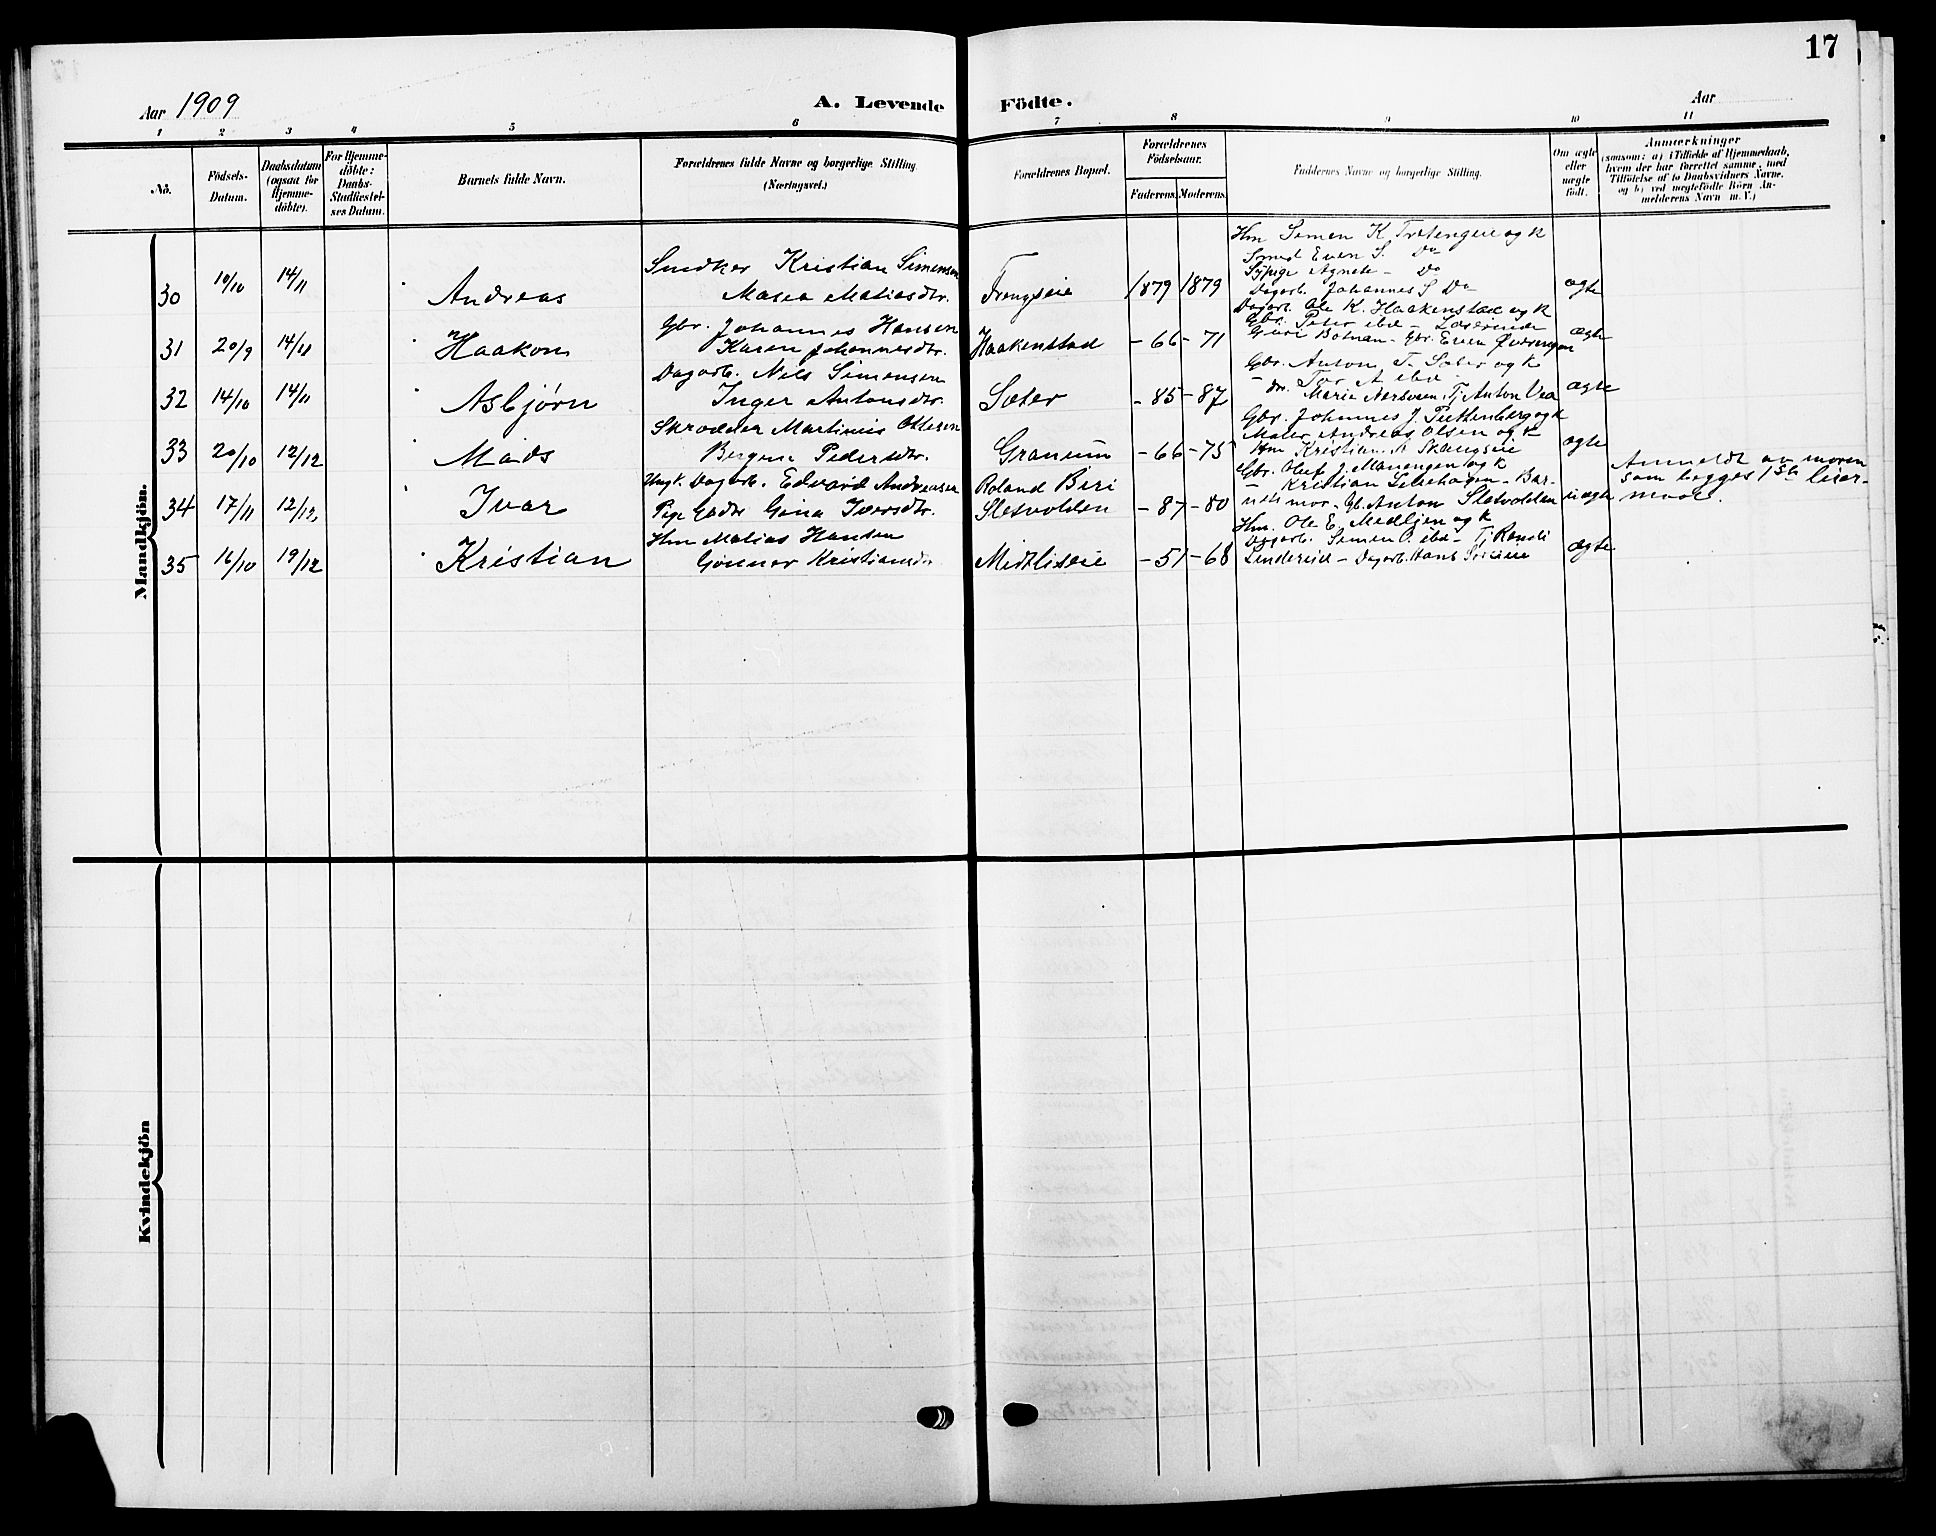 17
Aar 1909
A. Levende Födte.
Aar
1 2 3 4 5 6 7 8 9 10 11
No.
Födsels-Datum.
Daabsdatum (ogsaa for Hjemme-döbte).
For Hjemme-döbte: Daabs-Stadfæstel-ses Datum.
Barnets fulde Navn.
Forældrenes fulde Navne og borgerlige Stilling (Næringsvei.)
Forældrenes Bopæl.
Forældrenes Födselsaar.
Faderens. Moderens.
Faddernes Navne og borgerlige Stilling.
Om ægte eller uægte födt.
Anmærkninger
(saasom: a) i Tilfælde af Hjemmedaab, hvem der har forrettet samme, med Tilföielse af to Daabsvidners Navne, og b) ved uægtefödte Börn An-melderens Navn m. V.)
Mandkjön.
30 10/10 14/11 Andreas
Snedker Kristian Simensen
Matiasdtr.
1879 1879
Hm Simen K
og k
Smed Even S. Do
Sypige Agnete - Do
Dagarb. Johannes S Do
ægte
31 20/9 14/11 Haakon
Gbr. Johannes Hansen
Karen Johannesdtr.
Haakenstad - 66 - 71
Dagarb. Ole K. Haakenstad og k
Gbr. Peter ibd -
Gbr. Even
ægte
32 14/10 14/11 Asbjørn
Dagarb. Nils Simensen
Inger Antonsdtr.
Sæter - 85 - 87
Gbr. Anton T. Sæter og k
Marie
Tj Anton
ægte
33 20/10 12/12 Mads
Skrædder Martinus Ottesen
Pedersdtr.
Granum - 66 - 75
Gbr. Johannes J.
og k
Maler Andreas Olsen og k
Hm Kristian
ægte
34 17/11 12/12 Ivar
Ungk. Dagarb. Edvard Andersen
Pige Gbdtr Gina Iversdtr.
Roland Biri
Sletvolden - 87 - 80
Gbr. Olef J. Manengen og k
- Kristian
- Bar-
nets mor - Gb. Anton Sletvolden
uægte
Anmeldt av moren
som begges 1ste leier-
maal.
35 16/10 19/12 Kristian
Hm Matias Hansen
Kristiansdtr
Midtliseie - 51 - 68
Hm. Ole E. Medlien og k
Dagarb. Simen O. ibd - Tj. Randi
Lindereid - Dagarb. Hans
ægte
Kvindekjön